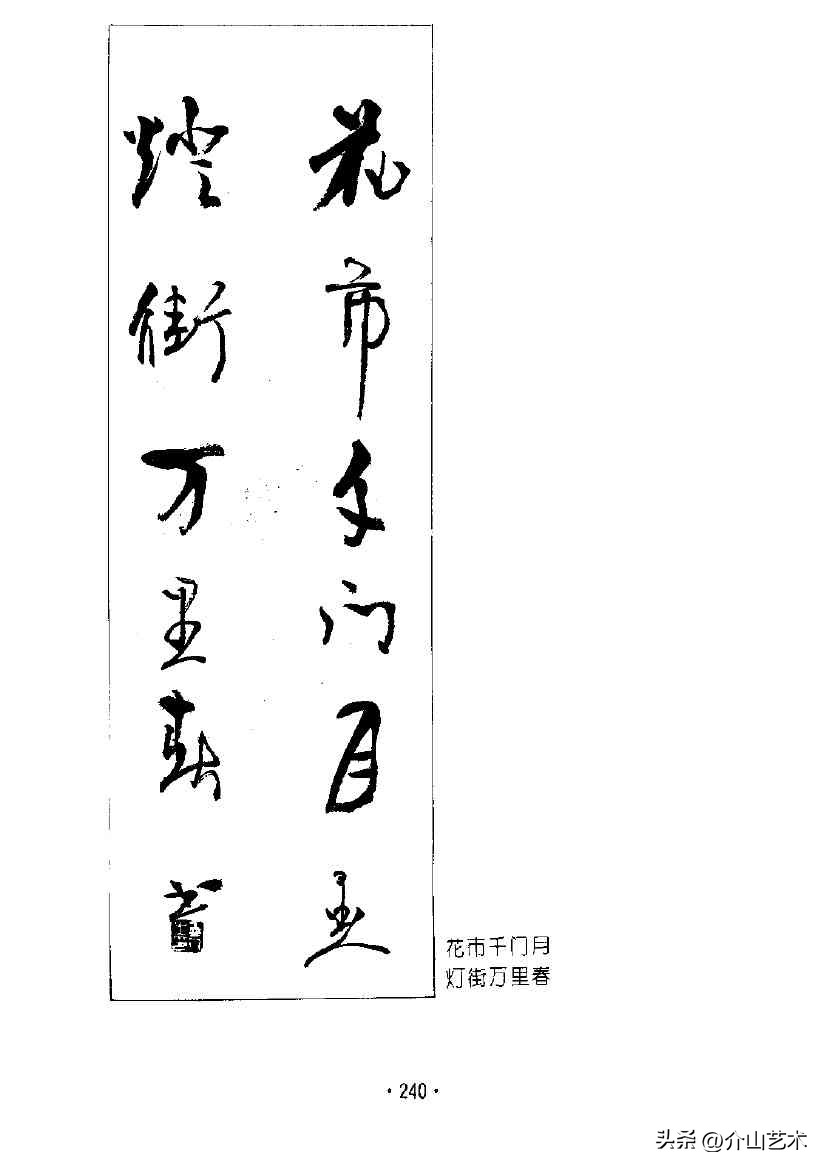 花市千门月
燈街万里春
花市千门月
灯街万里春
·240·
头条 @介山艺术